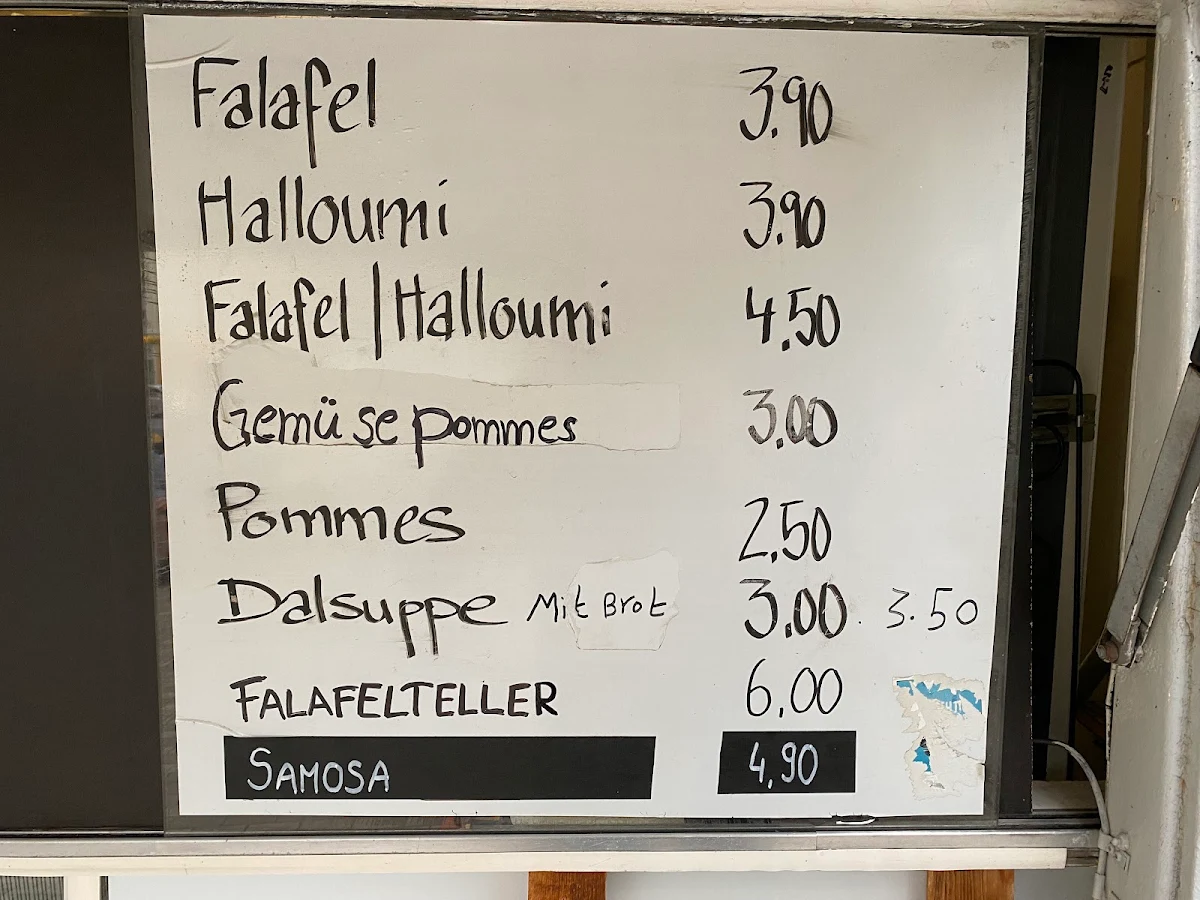 Falafel 3.90
Halloumi 3.90
Falafel | Halloumi 4.50
Gemüsepommes 3.00
Pommes 2,50
Dalsuppe Mit Brot 3.00 3.50
FALAFELTELLER 6,00
SAMOSA 4,90